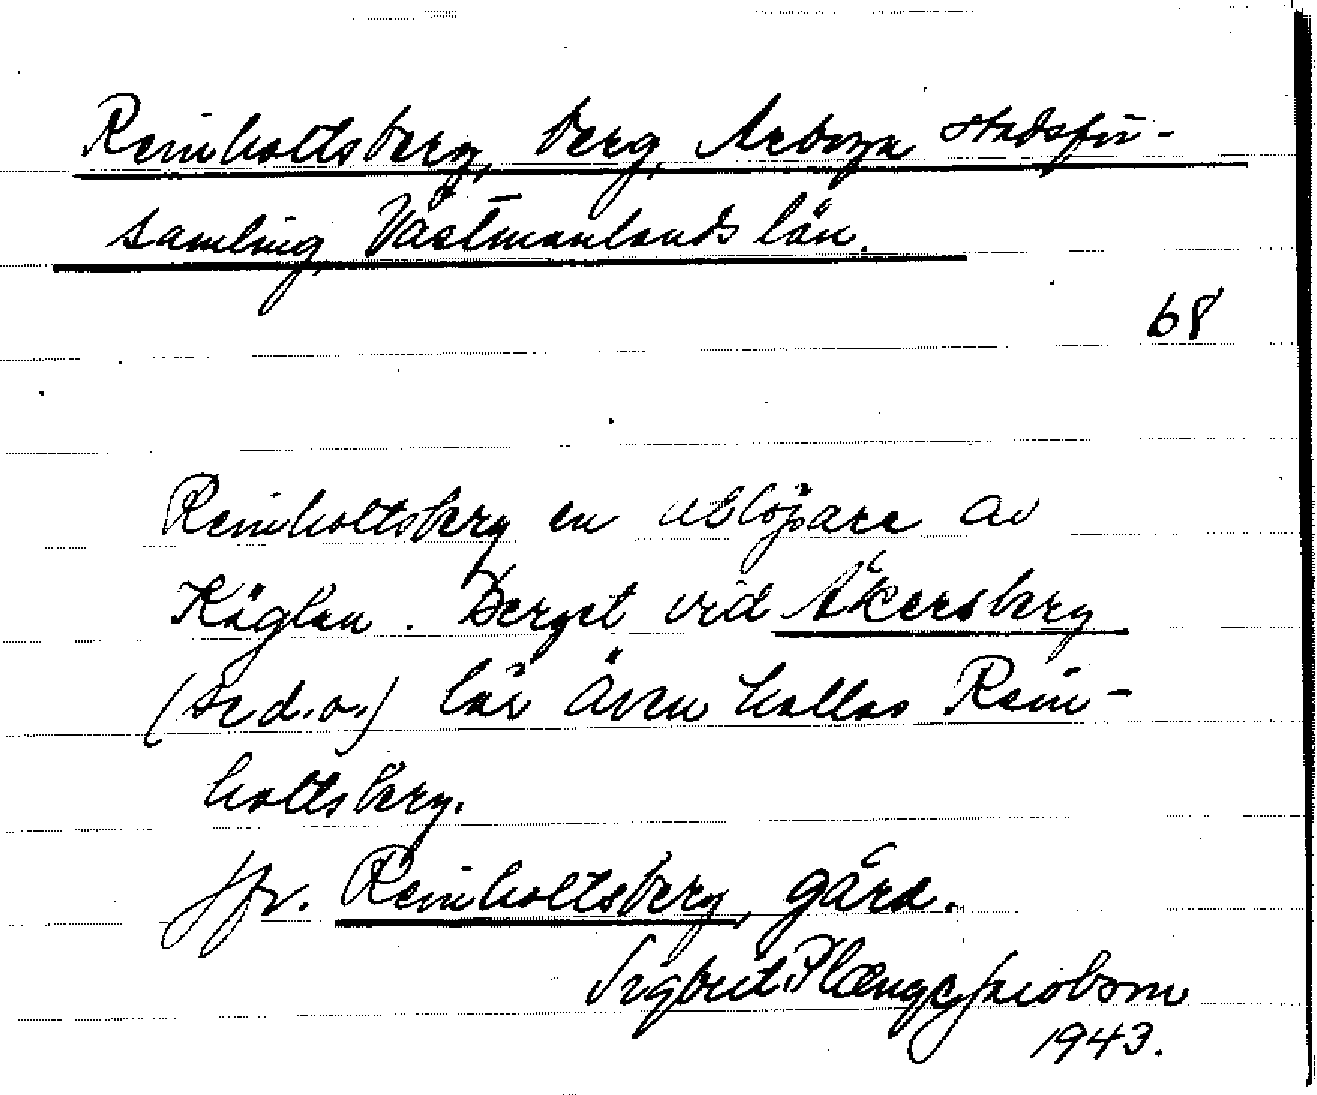 Reinholtsberg, berg, Arboga stadsför-
samling, Västmanlands län.
68
Reinholtsberg en utlöpare av
Käglan. Berget vid Åkersberg
(se d.o.) lär även kallas Rein-
holtsberg.
Jfr. Reinholtsberg, gård.
Sigbrit Plænge Jacobson
1943.